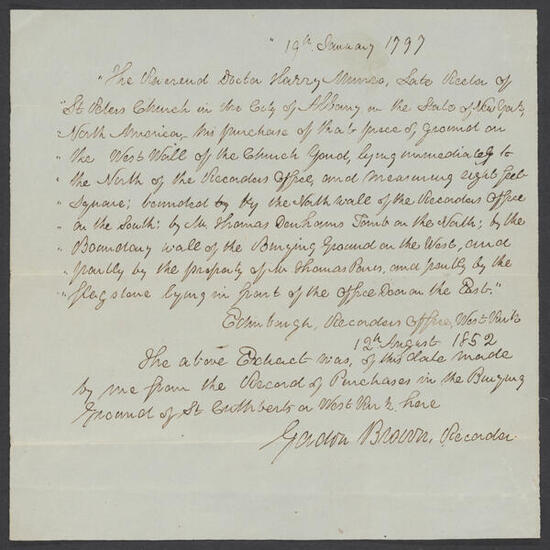 " 19th January 1797
"The Reverend Doctor Harry Munro, Late Rector of
"St Peters Church in the City of Albany in the State of New York,
" North America, his purchase of that piece of Ground on
" the West Wall of the Church Yard, lying immediately to
" the North of the Recorders Office, and measuring eight feet
" Square; bounded by by the North wall of the Recorders Office
" on the South: by Mr Thomas Denhams Tomb on the North; by the
" Boundary wall of the Burying Ground on the West, and
" partly by the property of Mr Thomas and partly by the
" flagstone lying in front of the Office Door on the East."
Edinburgh, Recorders Office, West Kirk
12th August 1852
The above Extract was, of this date made
by me from the Record of Purchases in the Burying
Ground of St Cuthberts or West Kirk, here
Gordon Brown, Recorder.